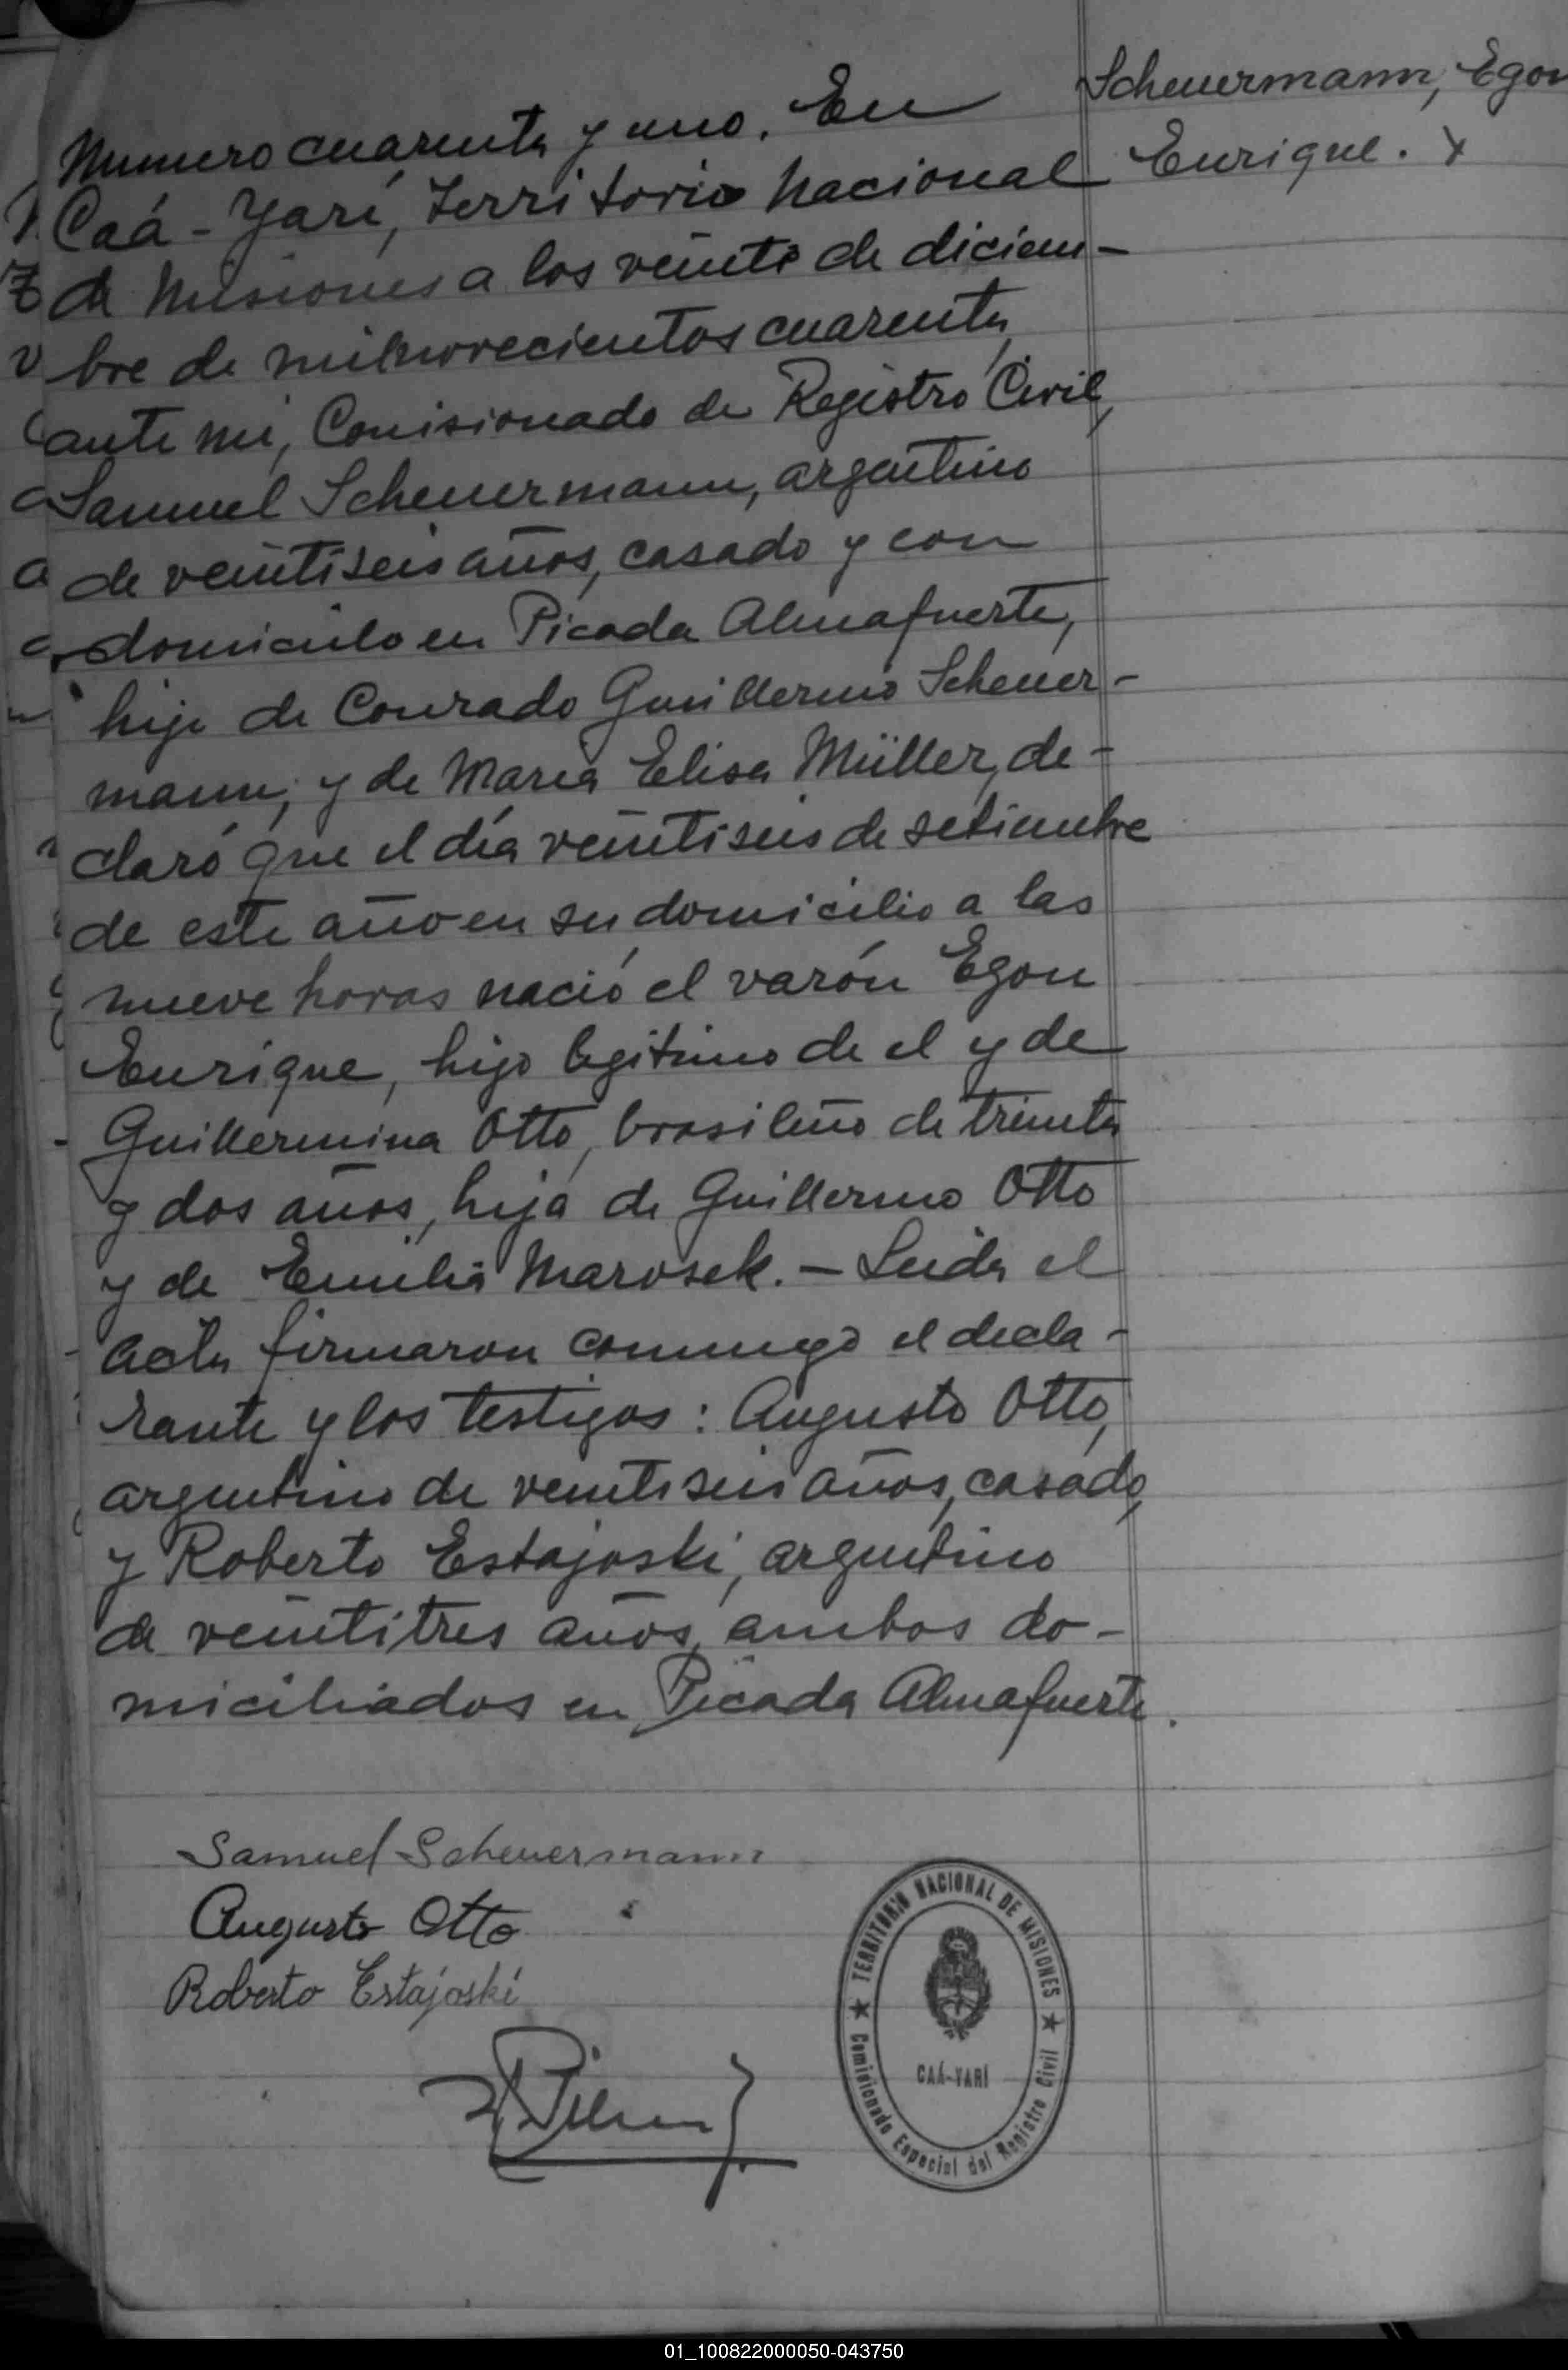 Scheuermann, Egon
Enrique. x
Numero cuarenta y uno. En
Caá-Yarí, Territorio Nacional
de Misiones a los veinte de diciem-
bre de milnovecientos cuarenta,
ante mi, Comisionado de Registro Civil,
Samuel Scheuermann, argentino
de veintiseis años, casado y con
domicilio en Picada Almafuerte,
hijo de Conrado Guillermo Scheuer-
mann, y de Maria Elisa Müller, de-
claró que el día veintiseis de setiembre
de este año en su domicilio a las
nueve horas nació el varón Egon
Enrique, hijo legitimo de el y de
Guillermina Otto, brasileña de treinta
y dos años, hija de Guillermo Otto
y de Emilia Marosek. - Leida el
acta firmaron conmigo el decla-
rante y los testigos: Augusto Otto,
argentino de veintiseis años, casado,
y Roberto Estajoski, argentino
de veintitres años, ambos do-
miciliados en Picada Almafuerte.
Samuel Scheuermann
Augusto Otto
Roberto Estajoski
TERRITORIO NACIONAL DE MISIONES
CAÁ-YARÍ
Comisionado Especial del Registro Civil
01_100822000050-043750